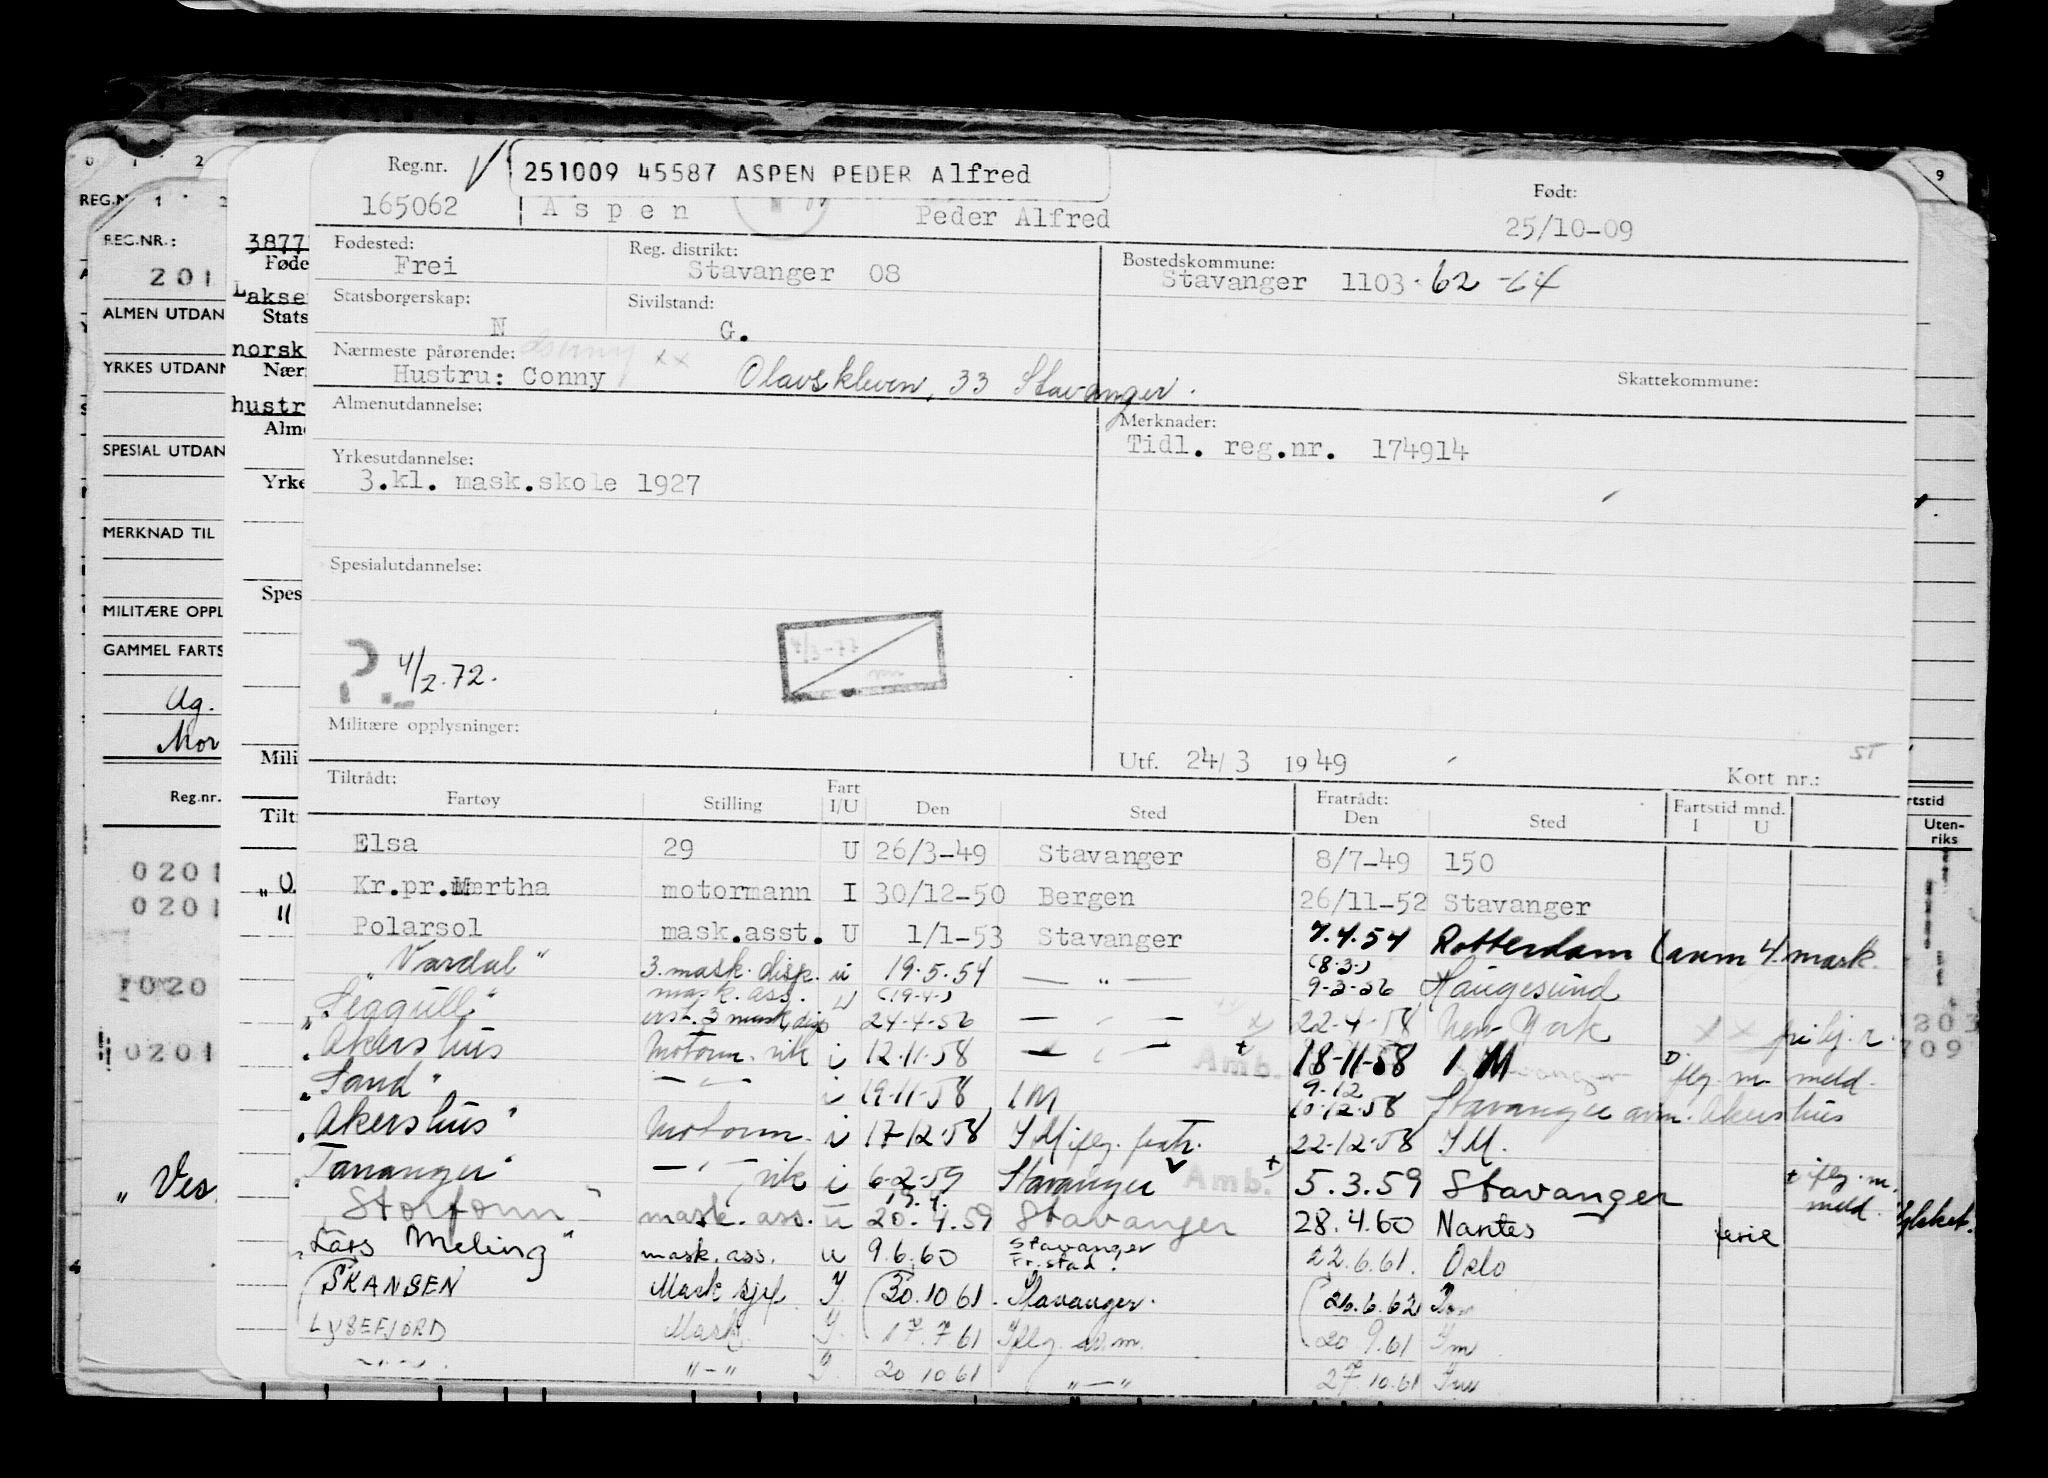 Reg.nr.
251009 45587 ASPEN PEDER Alfred
Født:
165062 Aspen Peder Alfred 25/10-09
Fødested: Reg. distrikt: Bostedskommune:
Frei Stavanger 08 Stavanger 1103 · 62 -64
Statsborgerskap: Sivilstand:
N G.
Nærmeste pårørende: xx
Hustru: Conny Olavskleven, 33 Stavanger. Skattekommune:
Almenutdannelse: Merknader:
Tidl. reg.nr. 174914
Yrkesutdannelse:
3.kl. mask.skole 1927
Spesialutdannelse:
?. 4/2.72.
Militære opplysninger:
Utf. 24/3 1949 Kort nr.: ST
Tiltrådt: Fratrådt: Fartstid mnd.
Fartøy Stilling Fart I/U Den Sted Den Sted I U
Elsa 29 U 26/3-49 Stavanger 8/7-49 150
Kr.pr. Mærtha motormann I 30/12-50 Bergen 26/11-52 Stavanger
Polarsol mask.asst. U 1/1-53 Stavanger 7.4.54 Rotterdam (avm 4. mask.
"Vardal" 3. mask. disp. u 19.5.54 — " — (8.3.) 9-3-56 Haugesund
"Seagull" mask. ass. u (19-4-) 24-4-56 — " — 22-4-58 New York xx
"Akershus Motorm. vik i 12-11-58 — " — Amb. + 18-11-58 IM flg. m meld.
"Sand" — " — i 19-11-58 IM 9-12 10-12-58 Stavanger avm. Akershus
"Akershus" Motorm. i 17-12-58 IM iflg. fratr. 22-12-58 IM.
"Tananger" — " — vik i 6-2-59 Stavanger Amb. + 5.3.59 Stavanger + iflg. m. meld.
"Storfonn" mask. ass. u 19.4. 20.4.59 Stavanger 28.4.60 Nantes ferie
"Lars Meling" mask. ass. u 9.6.60 Stavanger Fr.stad. 22.6.61. Oslo
SKANSEN Mask sjef I. 30.10 61. Stavanger. 26.6.62
LYSEFJORD Mask. I. 17.7 61 Iflg. avm. 20 9.61 Im
— " — " — " I. 20 10 61 " — " 27.10.61 Im
0 1 2
REG.N 1 2
REG.NR.:
201
ALMEN UTDAN
YRKES UTDANN
SPESIAL UTDAN
MERKNAD TIL
MILITÆRE OPPL
GAMMEL FARTS
Ug.
Mor
Reg.nr.
0201
0201
1020
0201
"Ves.
3877
Føde
Lakse
Stats
norsk
Nær
hustr
Alme
Yrke
Spes
Mili
Tilt
9
rtstid
Uten-
riks
203
709